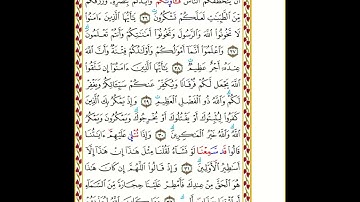 أَن يَتَخَطَّفَكُمُ ٱلنَّاسُ فَـَٔاوَىٰكُمْ وَأَيَّدَكُم بِنَصْرِهِۦ وَرَزَقَكُم
مِّنَ ٱلطَّيِّبَٰتِ لَعَلَّكُمْ تَشْكُرُونَ ٢٦ يَٰٓأَيُّهَا ٱلَّذِينَ ءَامَنُوا۟
لَا تَخُونُوا۟ ٱللَّهَ وَٱلرَّسُولَ وَتَخُونُوٓا۟ أَمَٰنَٰتِكُمْ وَأَنتُمْ تَعْلَمُونَ
٢٧ وَٱعْلَمُوٓا۟ أَنَّمَآ أَمْوَٰلُكُمْ وَأَوْلَٰدُكُمْ فِتْنَةٌ وَأَنَّ ٱللَّهَ
عِندَهُۥٓ أَجْرٌ عَظِيمٌ ٢٨ يَٰٓأَيُّهَا ٱلَّذِينَ ءَامَنُوٓا۟ إِن تَتَّقُوا۟
ٱللَّهَ يَجْعَل لَّكُمْ فُرْقَانًا وَيُكَفِّرْ عَنكُمْ سَيِّـَٔاتِكُمْ وَيَغْفِرْ
لَكُمْ وَٱللَّهُ ذُو ٱلْفَضْلِ ٱلْعَظِيمِ ٢٩ وَإِذْ يَمْكُرُ بِكَ ٱلَّذِينَ
كَفَرُوا۟ لِيُثْبِتُوكَ أَوْ يَقْتُلُوكَ أَوْ يُخْرِجُوكَ وَيَمْكُرُونَ وَيَمْكُرُ
ٱللَّهُ وَٱللَّهُ خَيْرُ ٱلْمَٰكِرِينَ ٣٠ وَإِذَا تُتْلَىٰ عَلَيْهِمْ ءَايَٰتُنَا
قَالُوا۟ قَدْ سَمِعْنَا لَوْ نَشَآءُ لَقُلْنَا مِثْلَ هَٰذَآ إِنْ هَٰذَآ إِلَّآ
أَسَٰطِيرُ ٱلْأَوَّلِينَ ٣١ وَإِذْ قَالُوا۟ ٱللَّهُمَّ إِن كَانَ هَٰذَا
هُوَ ٱلْحَقَّ مِنْ عِندِكَ فَأَمْطِرْ عَلَيْنَا حِجَارَةً مِّنَ ٱلسَّمَآءِ